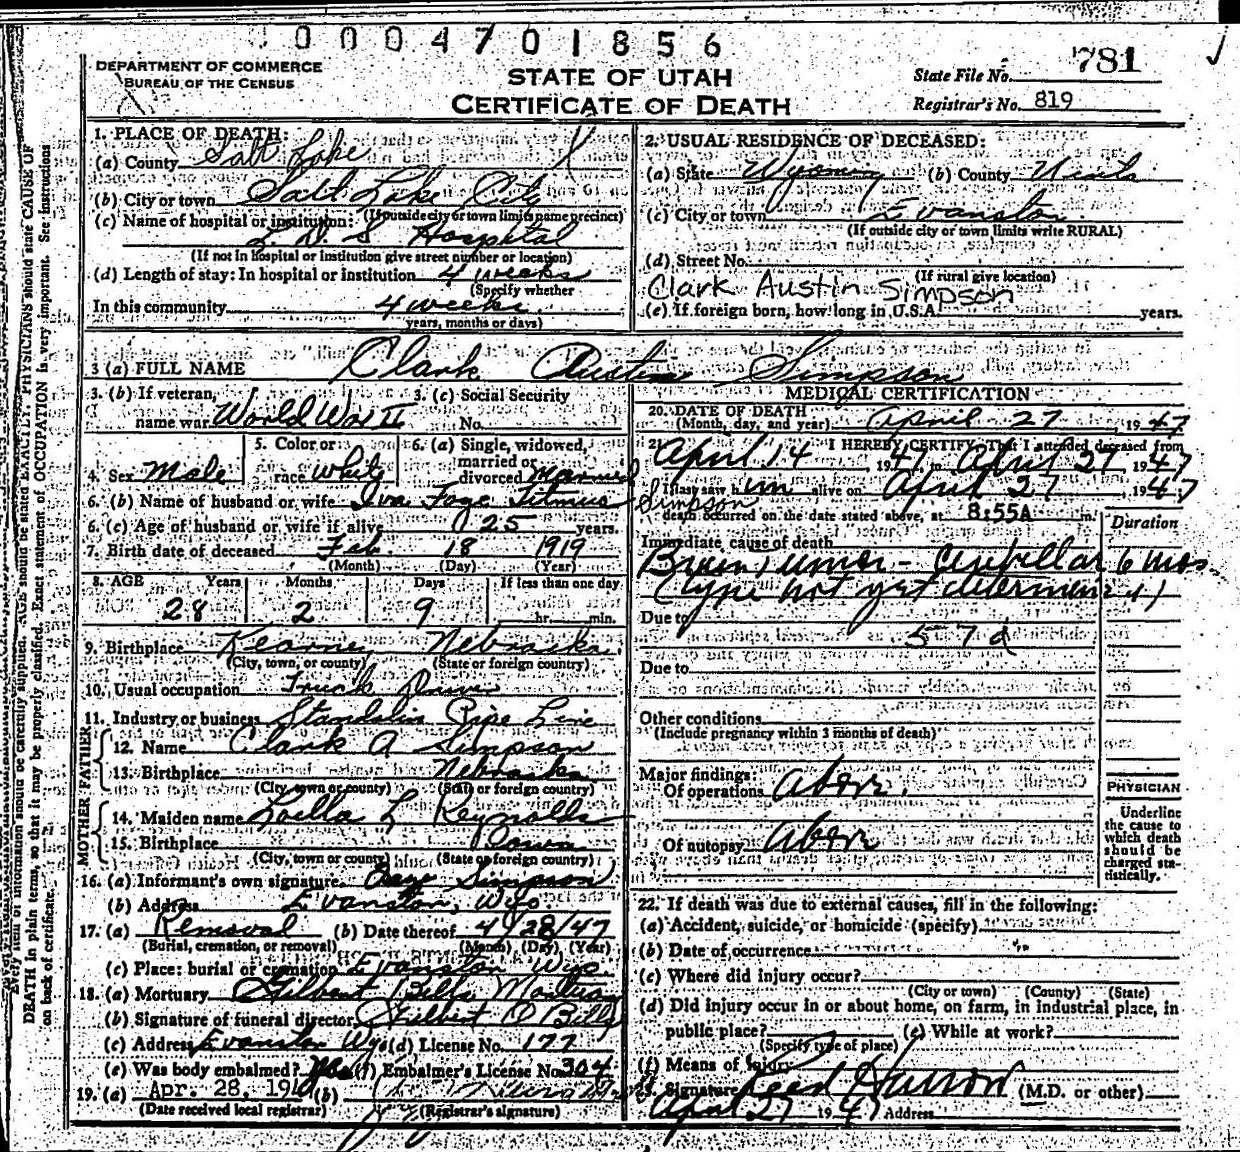 0 0 0 4 7 0 1 8 5 6
DEPARTMENT OF COMMERCE
BUREAU OF THE CENSUS
STATE OF UTAH
CERTIFICATE OF DEATH
State File No. 781
Registrar's No. 819
1. PLACE OF DEATH:
(a) County Salt Lake
(b) City or town Salt Lake City
(If outside city or town limits name precinct)
(c) Name of hospital or institution:
L. D. S Hospital
(If not in hospital or institution give street number or location)
(d) Length of stay: In hospital or institution 4 weeks
(Specify whether
In this community 4 weeks
years, months or days)
2. USUAL RESIDENCE OF DECEASED:
(a) State Wyoming (b) County Uinta
(c) City or town Evanston
(If outside city or town limits write RURAL)
(d) Street No.
(If rural give location)
Clark Austin Simpson
(e) If foreign born, how long in U.S.A. years.
3 (a) FULL NAME Clark Austin Simpson
3. (b) If veteran, name war World War II
3. (c) Social Security No.
4. Sex Male
5. Color or race White
6. (a) Single, widowed, married or divorced Married
6. (b) Name of husband or wife Iva Faye Titmus Simpson
6. (c) Age of husband or wife if alive 25 years.
7. Birth date of deceased Feb. 18 1919
(Month) (Day) (Year)
8. AGE Years Months Days If less than one day
28 2 9 hr. min.
9. Birthplace Kearney Nebraska
(City, town, or county) (State or foreign country)
10. Usual occupation Truck Driver
11. Industry or business Pipe Line
FATHER
12. Name Clark A Simpson
13. Birthplace Nebraska
(City, town or county) (State or foreign country)
MOTHER
14. Maiden name L Reynolds
15. Birthplace Iowa
(City, town or county) (State or foreign country)
16. (a) Informant's own signature Simpson
(b) Address Evanston, Wyo
17. (a) Removal (b) Date thereof 4/28/47
(Burial, cremation, or removal) (Month) (Day) (Year)
(c) Place: burial or cremation Evanston Wyo.
18. (a) Mortuary Gilbert Bills Mortuary
(b) Signature of funeral director Gilbert O Bills
(c) Address Evanston Wyo (d) License No. 177
(e) Was body embalmed? Yes (f) Embalmer's License No. 304
19. (a) Apr. 28, 19 (b)
(Date received local registrar) (Registrar's signature)
MEDICAL CERTIFICATION
20. DATE OF DEATH
(Month, day, and year) April 27 1947
21. I HEREBY CERTIFY, That I attended deceased from
April 14, 1947, to April 27 1947
I last saw him alive on April 27, 1947
death occurred on the date stated above, at 8:55A m.
Duration
Immediate cause of death
Brain tumor - Cerebellar 6 mos.
(type not yet determined)
Due to
57d
Due to
Other conditions
(Include pregnancy within 3 months of death)
Major findings:
Of operations above.
Of autopsy above
PHYSICIAN
Underline
the cause to
which death
should be
charged sta-
tistically.
22. If death was due to external causes, fill in the following:
(a) Accident, suicide, or homicide (specify)
(b) Date of occurrence
(c) Where did injury occur?
(City or town) (County) (State)
(d) Did injury occur in or about home, on farm, in industrial place, in
public place? (e) While at work?
(Specify type of place)
(f) Means of Injury
23. Signature Reed Harrow (M.D. or other)
April 27 1947 Address
DEATH in plain terms, so that it may be properly classified. Exact statement of OCCUPATION is very important. See instructions
on back of certificate.